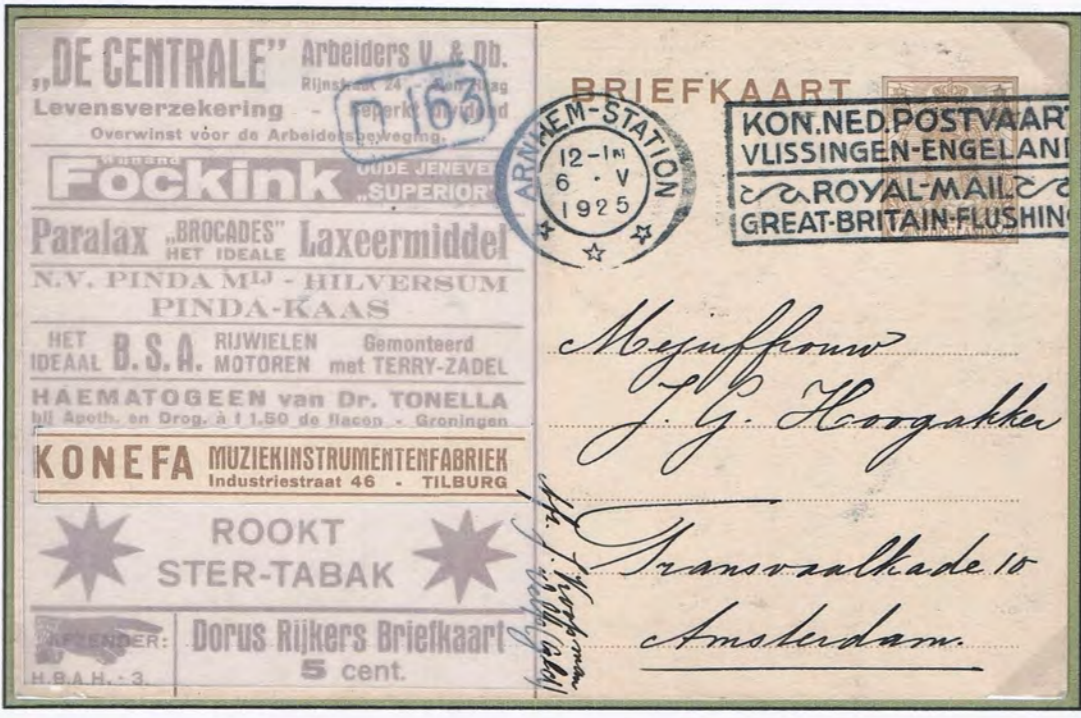 „DE CENTRALE” Arbeiders V. & Db.
Rijnstraat 24 - Den Haag
Levensverzekering - Beperkt dividend
Overwinst voor de Arbeidersbeweging.
Wijnand
Fockink OUDE JENEVER
„SUPERIOR”
Paralax „BROCADES” Laxeermiddel
HET IDEALE
N.V. PINDA MIJ - HILVERSUM
PINDA-KAAS
HET IDEAAL B.S.A. RIJWIELEN Gemonteerd
MOTOREN met TERRY-ZADEL
HAEMATOGEEN van Dr. TONELLA
bij Apoth. en Drog. à f 1.50 de flacon - Groningen
KONEFA MUZIEKINSTRUMENTENFABRIEK
Industriestraat 46 - TILBURG
ROOKT
STER-TABAK
AFZENDER:
H.B.A.H. - 3.
Dorus Rijkers Briefkaart
5 cent.
163
BRIEFKAART
ARNHEM-STATION
12-1N
6 · V
1925
KON.NED.POSTVAART
VLISSINGEN-ENGELAND
ROYAL-MAIL
GREAT-BRITAIN-FLUSHING
Mejuffrouw
J. G. Hoogakker
Transvaalkade 10
Amsterdam.
Afz. J. Koopman
Velp